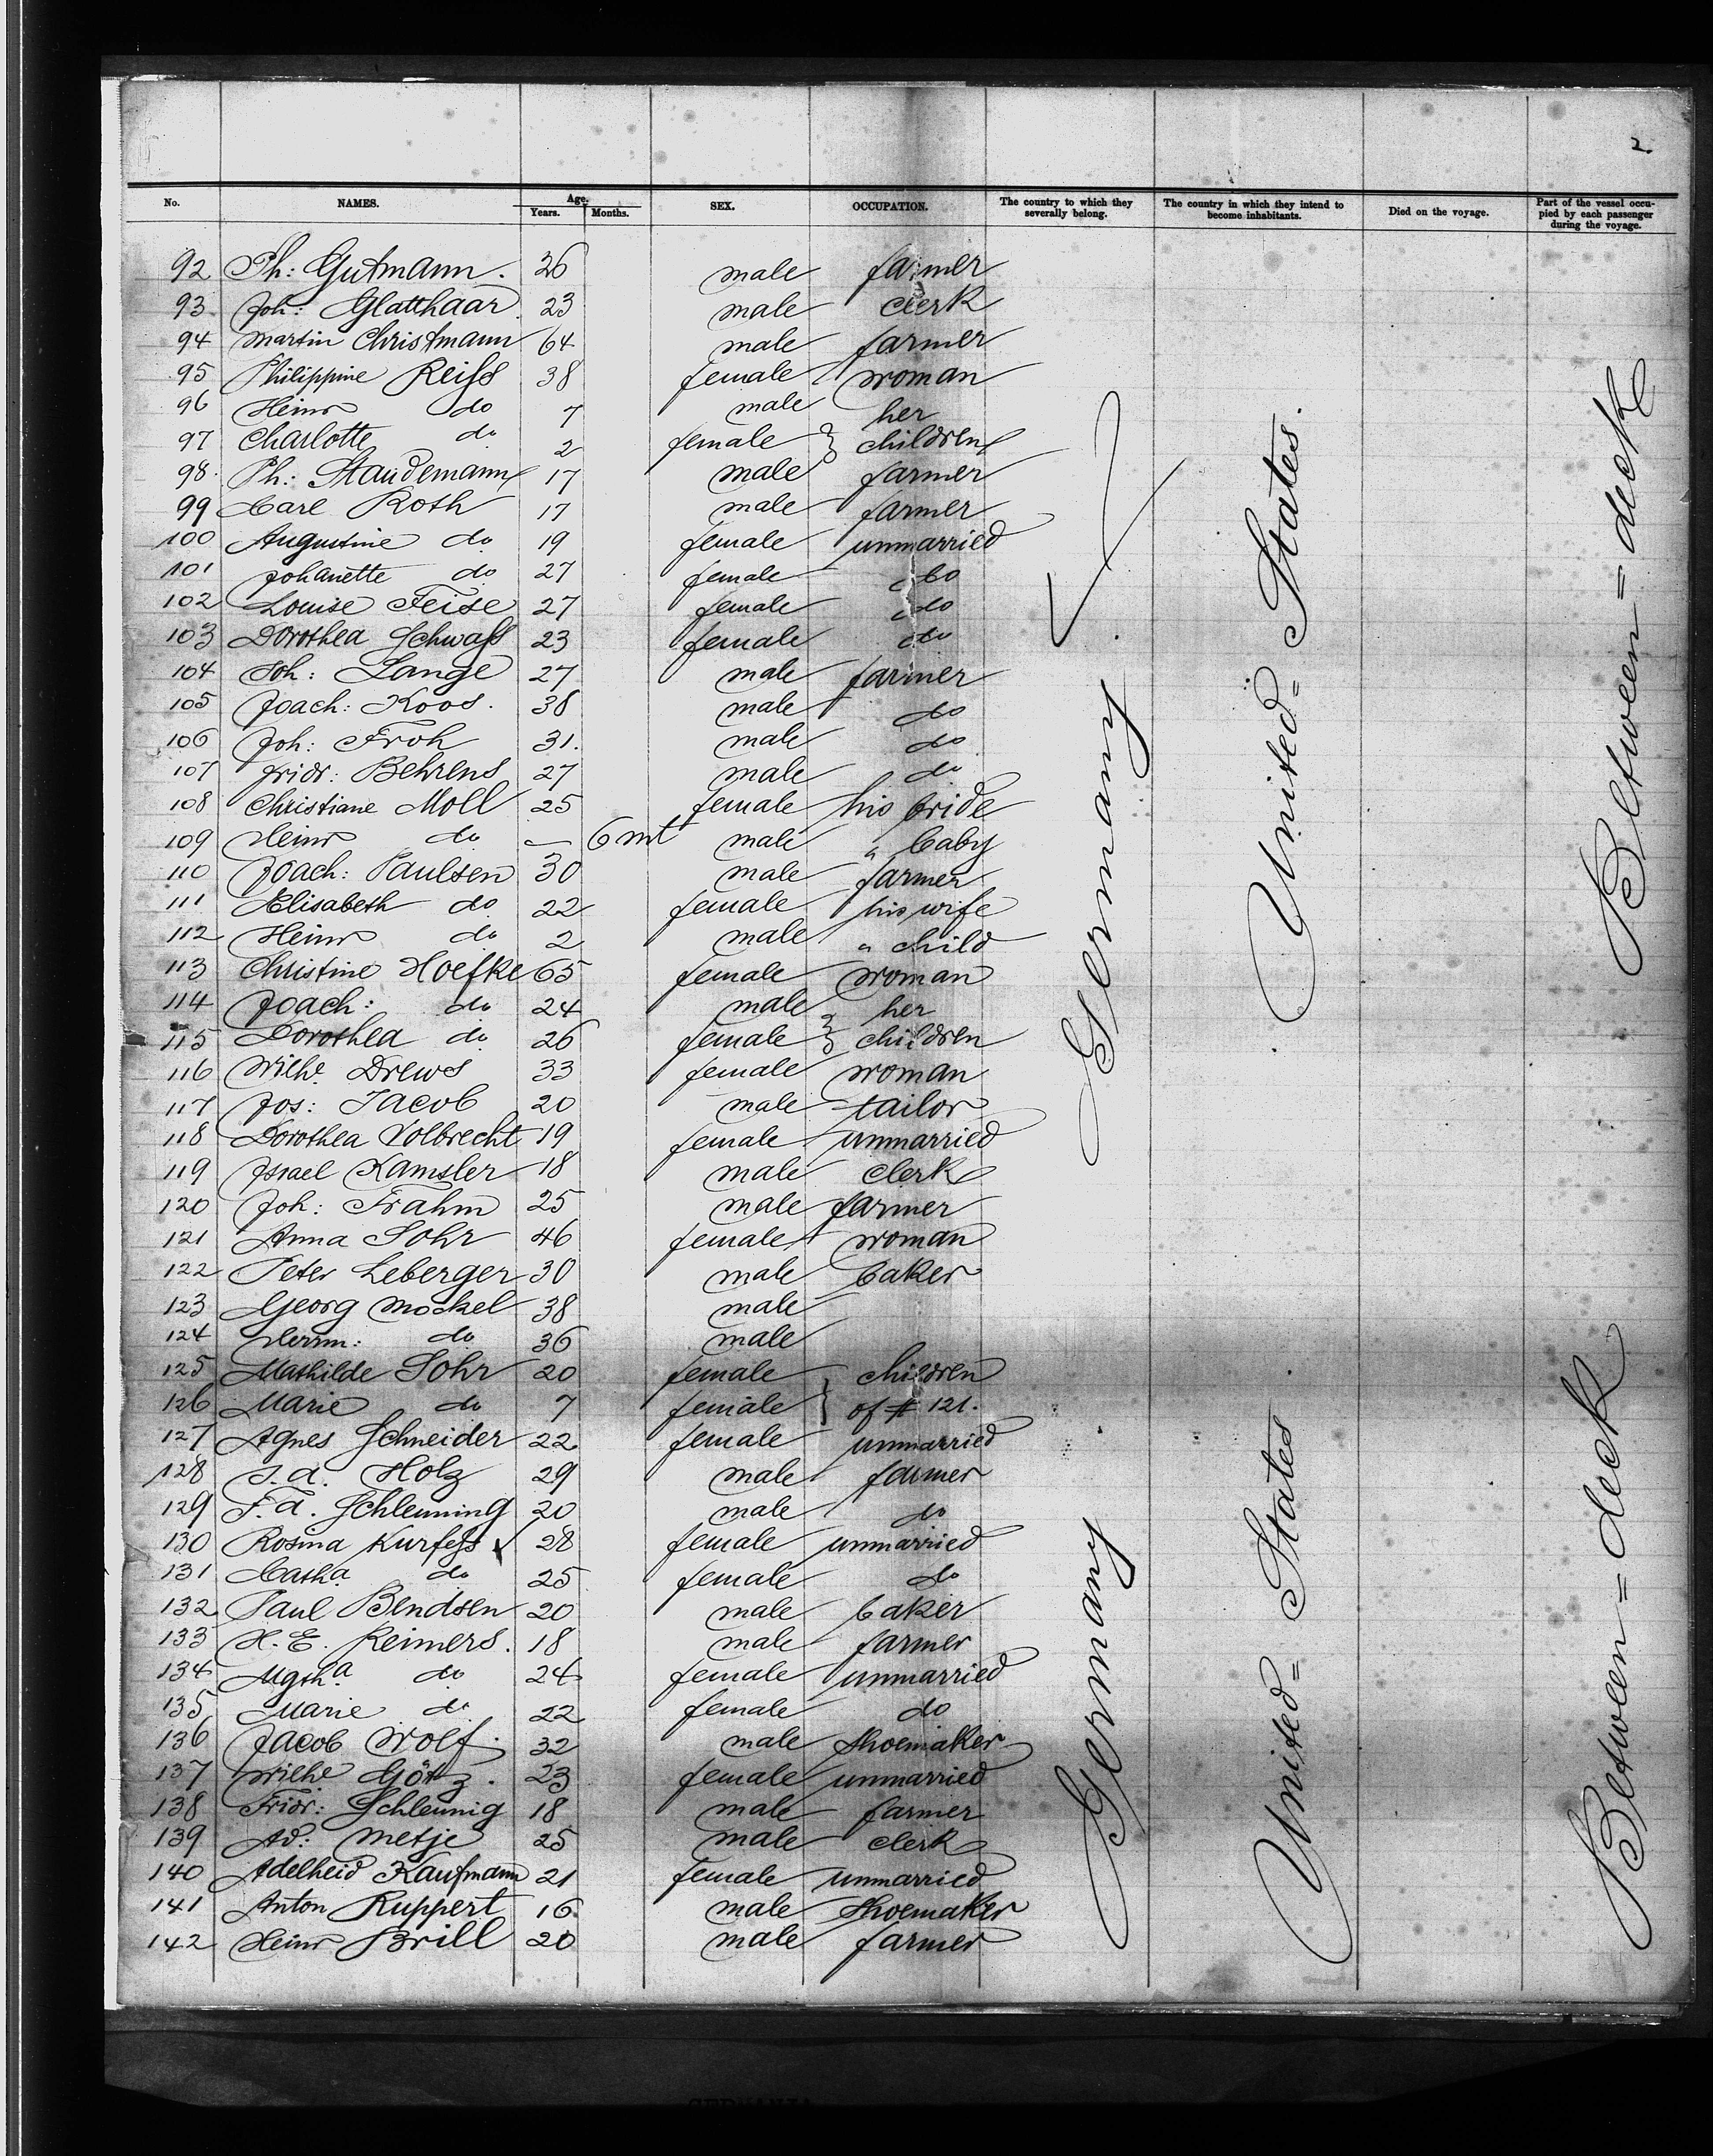 2.
No. NAMES. Age. Years. Months. SEX. OCCUPATION. The country to which they severally belong. The country in which they intend to become inhabitants. Died on the voyage. Part of the vessel occupied by each passenger during the voyage.
92 Ph: Gutmann. 26 male farmer
93 Joh: Glatthaar 23 male clerk
94 Martin Christmann 64 male farmer
95 Philippine Reiss 38 female woman
96 Heinr do 7 male her
97 Charlotte do 2 female } children
98. Ph: Staudemann 17 male farmer
99 Carl Roth 17 male farmer
100 Augustine do 19 female unmarried
101 Johanette do 27 female do
102 Louise Feise 27 female do
103 Dorothea Schwass 23 female do
104 Joh: Lange 27 male farmer
105 Joach: Koos. 38 male do
106 Joh: Froh 31. male do
107 Fridr: Behrens 27 male do
108 Christiane Moll 25 female his bride
109 Heinr do — 6 mt male " baby
110 Joach: Paulsen 30 male farmer
111 Elisabeth do 22 female his wife
112 Heinr do 2 male " child
113 Christine Hoefke 65 female woman
114 Joach: do 24 male her
115 Dorothea do 26 female } children
116 Wilhe Drews 33 female woman
117 Jos: Jacob 20 male tailor
118 Dorothea Volbrecht 19 female unmarried
119 Israel Kamsler 18 male clerk
120 Joh: Frahm 25 male farmer
121 Anna Sohr 46 female woman
122 Peter Leberger 30 male baker
123 Georg Mockel 38 male
124 Herrm: do 36 male
125 Mathilde Sohr 20 female children
126 Marie do 7 female } of # 121.
127 Agnes Schneider 22 female unmarried
128 J. A. Holz 29 male farmer
129 F. A. Schleuning 20 male do
130 Rosina Kurfess 28 female unmarried
131 Catha do 25 female do
132 Paul Bendsen 20 male baker
133 H. E. Reimers. 18 male farmer
134 Mgtha do 24 female unmarried
135 Marie do 22 female do
136 Jacob Wolf. 32 male shoemaker
137 Wilhe Götz. 23 female unmarried
138 Fridr: Schleunig 18 male farmer
139 Ad: Metje 25 male clerk
140 Adelheid Kaufmann 21 female unmarried
141 Anton Ruppert 16 male shoemaker
142 Heinr Brill 20 male farmer
Germany
Germany
United= States.
United= States
Between = deck
Between = deck